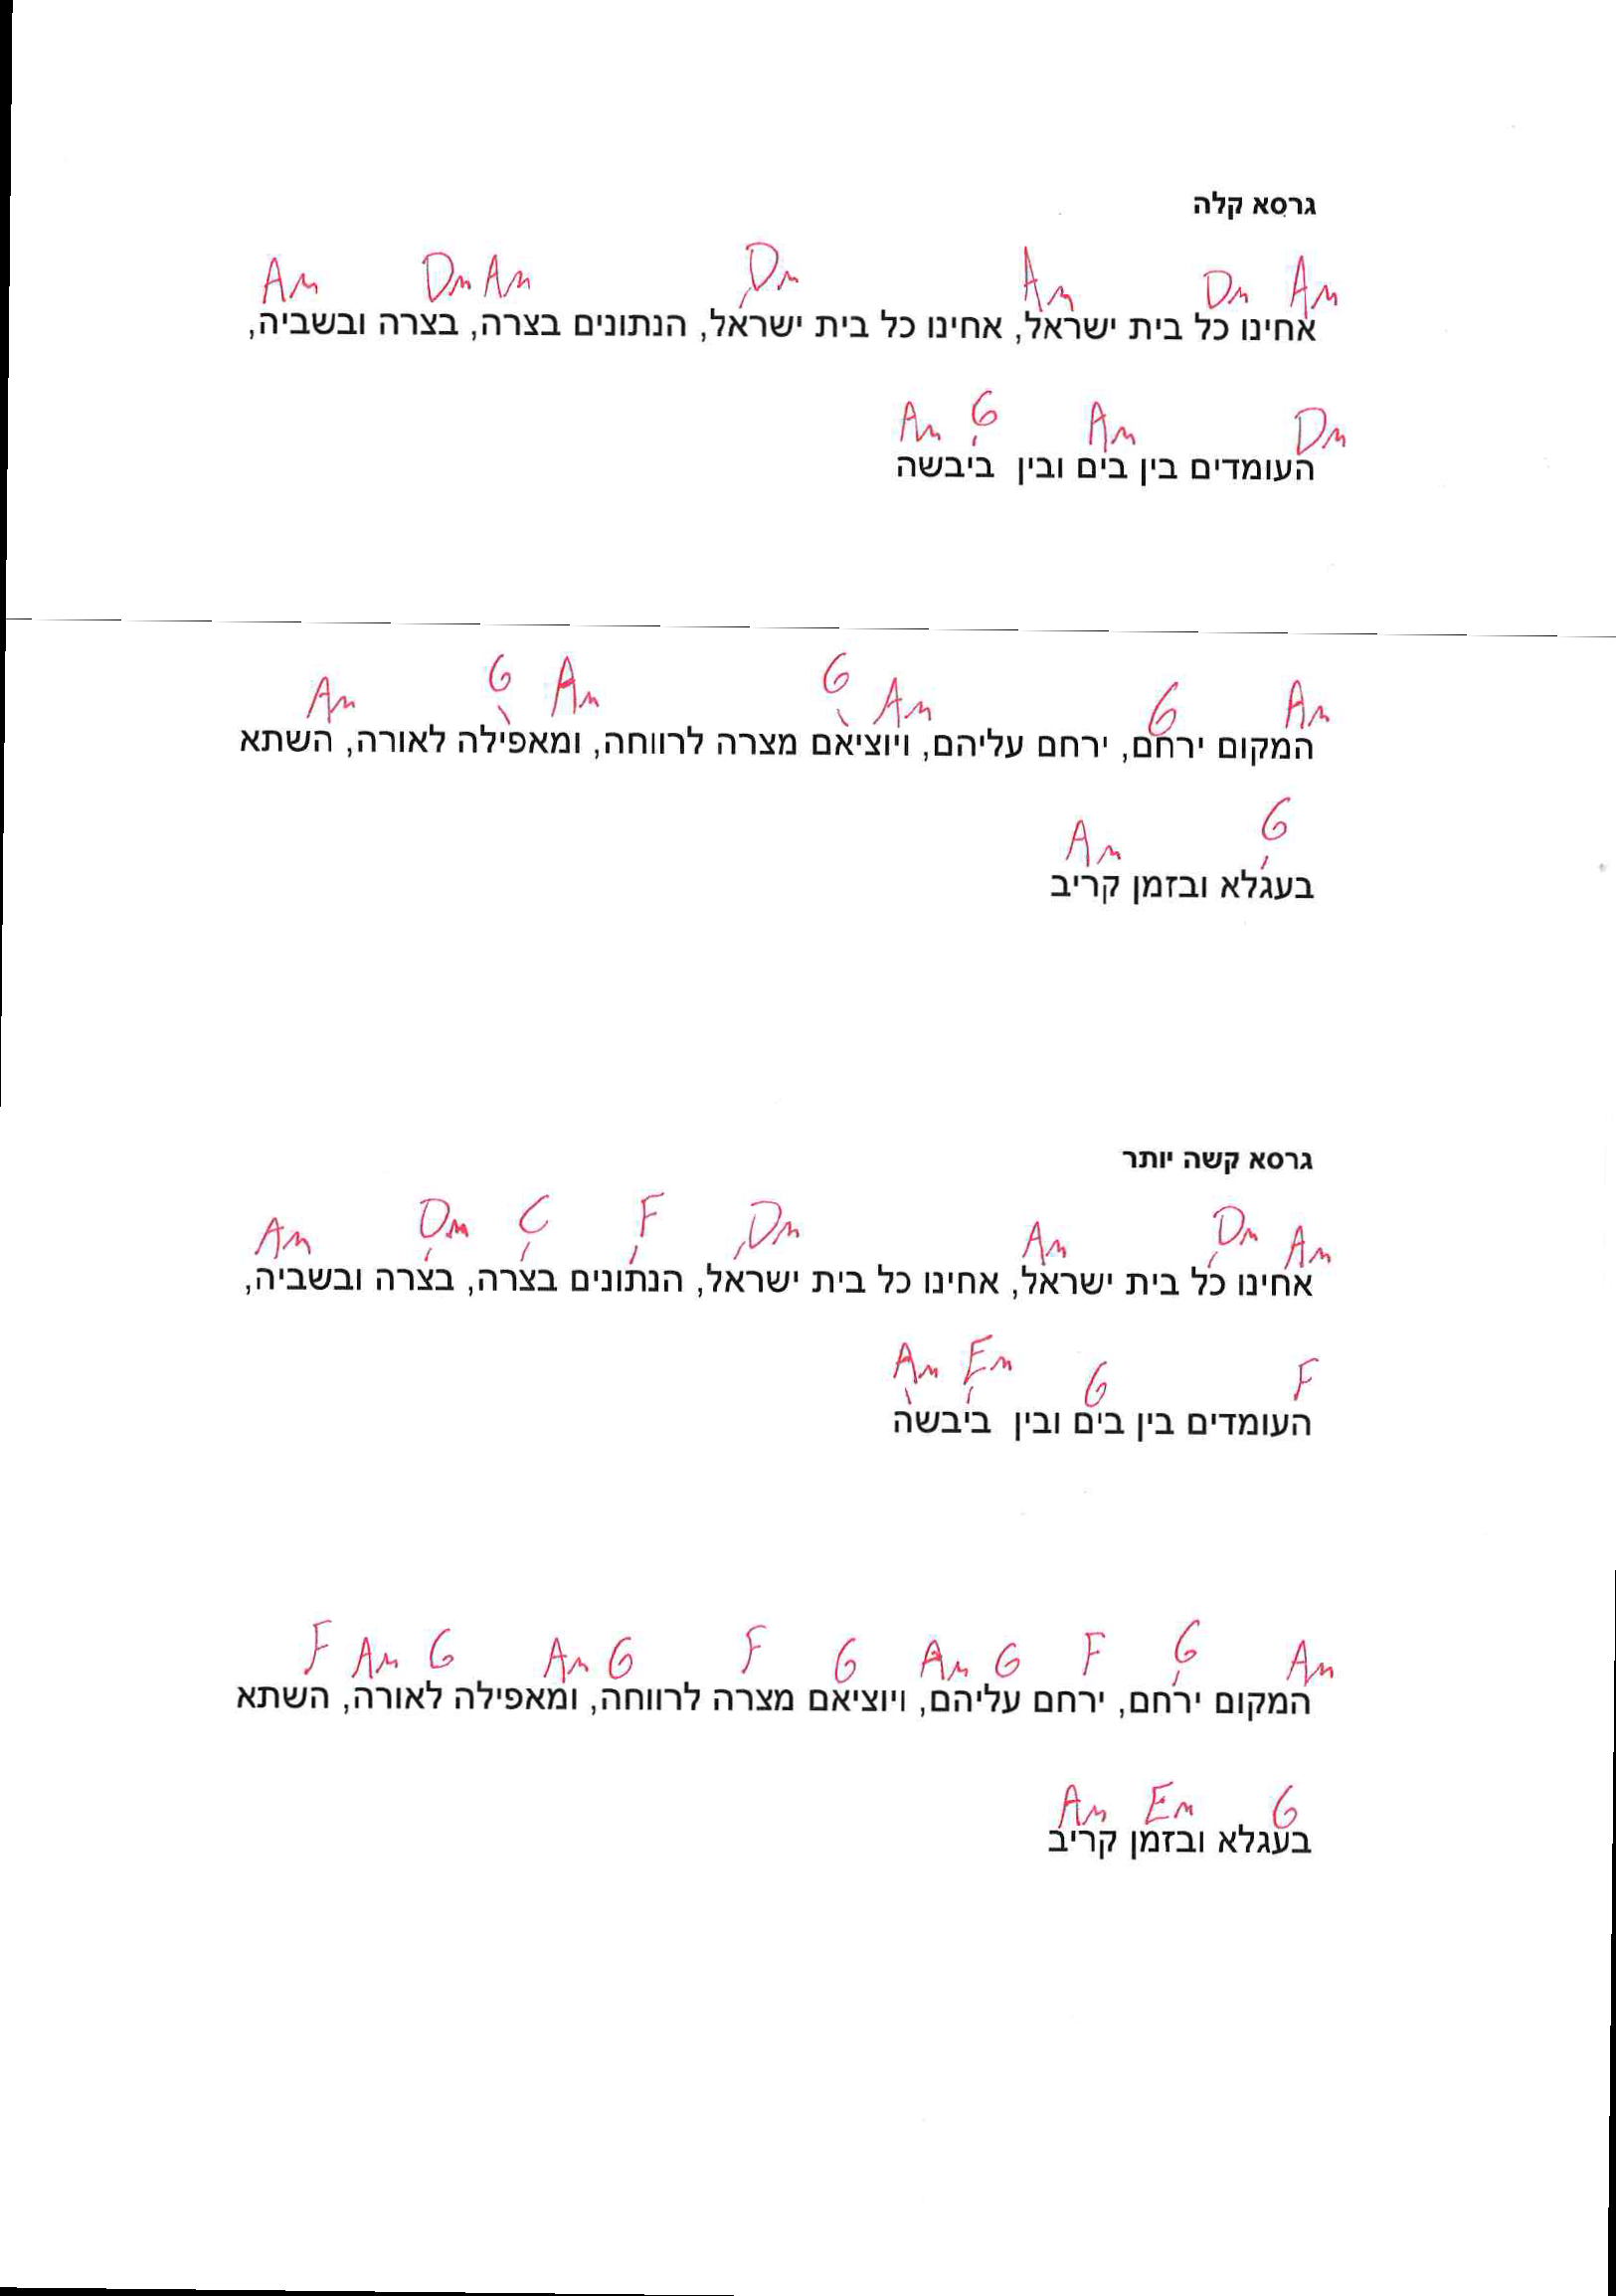 גרסא קלה
Am Dm Am Dm Am Dm Am
אחינו כל בית ישראל, אחינו כל בית ישראל, הנתונים בצרה, בצרה ובשביה,
Am G Am Dm
העומדים בין בים ובין ביבשה
Am G Am G Am G Am
המקום ירחם, ירחם עליהם, ויוציאם מצרה לרווחה, ומאפילה לאורה, השתא
Am G
בעגלא ובזמן קריב
גרסא קשה יותר
Am Dm C F Dm Am Dm Am
אחינו כל בית ישראל, אחינו כל בית ישראל, הנתונים בצרה, בצרה ובשביה,
Am Em G F
העומדים בין בים ובין ביבשה
F Am G Am G F G Am G F G Am
המקום ירחם, ירחם עליהם, ויוציאם מצרה לרווחה, ומאפילה לאורה, השתא
Am Em G
בעגלא ובזמן קריב